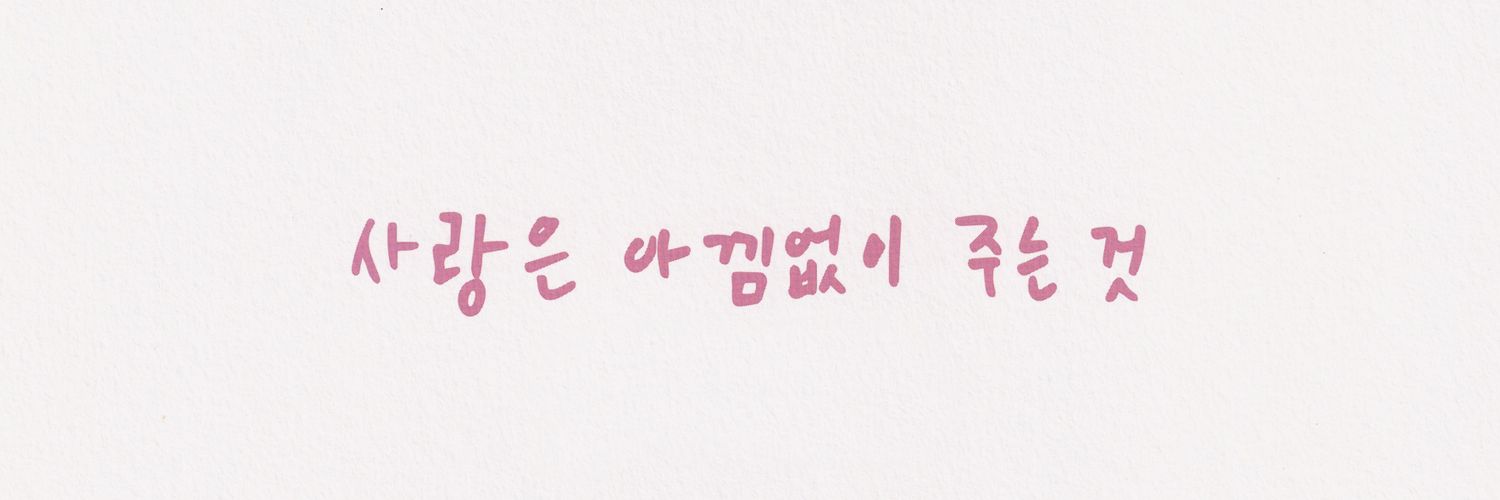 사랑은 아낌없이 주는 것